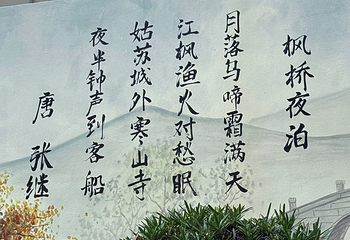 枫桥夜泊
月落乌啼霜满天
江枫渔火对愁眠
姑苏城外寒山寺
夜半钟声到客船
唐 张继